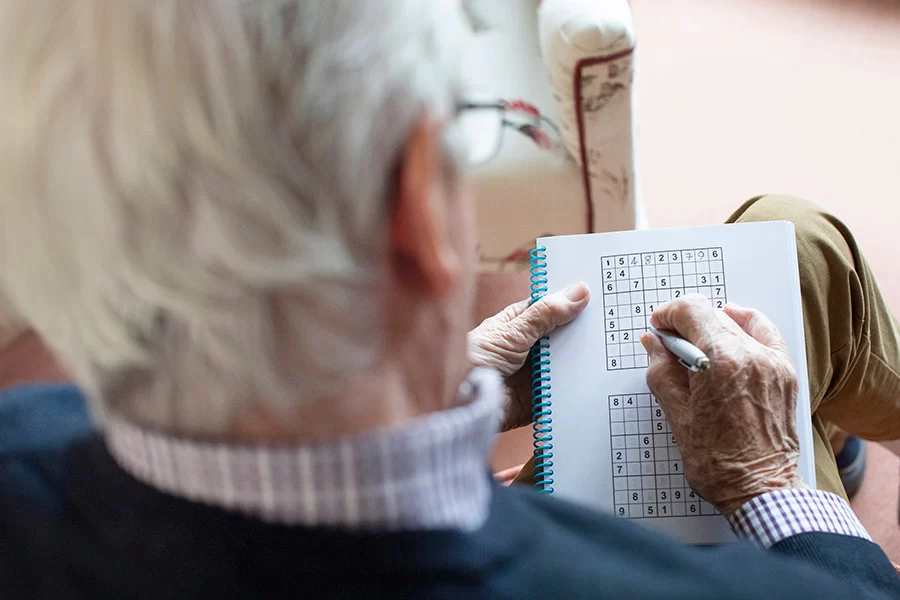 1 5 4 8 2 3 7 9 6
2 4
6 7 5 3 1
2 7
4 8 1 2
5
1 2
8
8 4
8
5
6
2 8
7
8 3 9 4
9 5 1 6